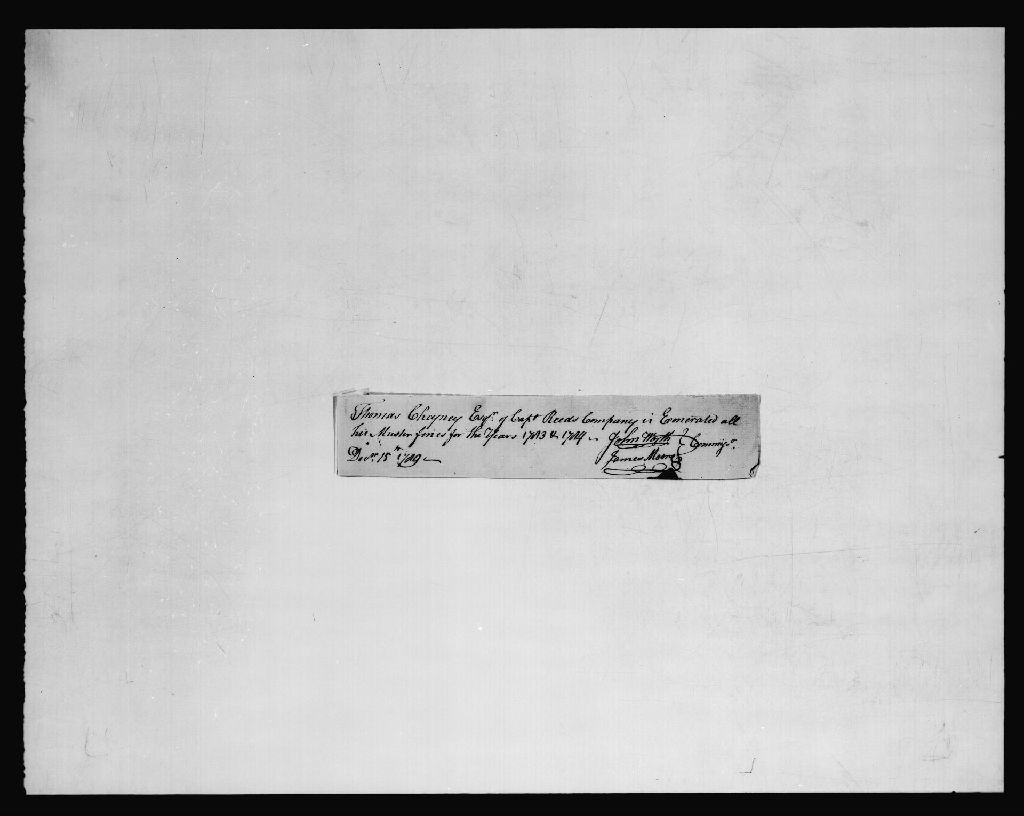 Thomas Cheyney Esqr. of Capt Reeds Company is Exonerated all
his Muster fines for the Years 1783 & 1784 John Wyth Commisr.
Decr. 15th 1789 James Moore